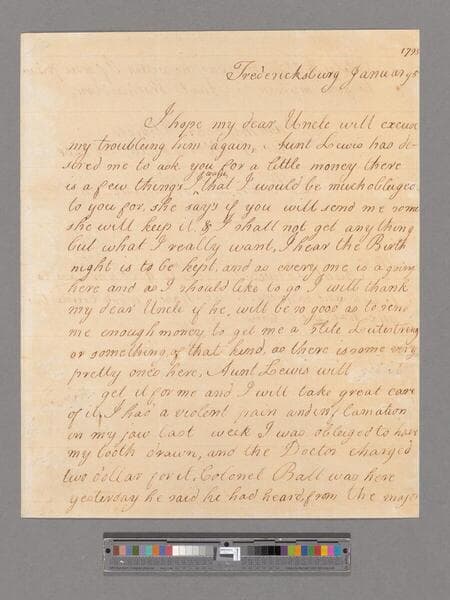 1795
Fredericksburg January 5
I hope my dear Uncle will excuse
my troubleing him again, Aunt Lewis has de-
sired me to ask you for a little money there
is a few things I want that I would be much obliged
to you for, she says if you will send me some
she will keep it & I shall not get any thing
but what I really want, I hear the Birth
night is to be kept, and as every one is a going
here and as I should like to go I will thank
my dear Uncle if he will be so good as to send
me enough money to get me a slite Lutestring
or something of that kind, as there is some very
pretty ones here, Aunt Lewis will
get it for me and I will take great care
of it, I had a violent pain and inflamation
in my jaw last week I was obleiged to have
my tooth drawn, and the Doctor charged
two dollar for it. Colonel Ball was here
yesterday he said he had heard from the major